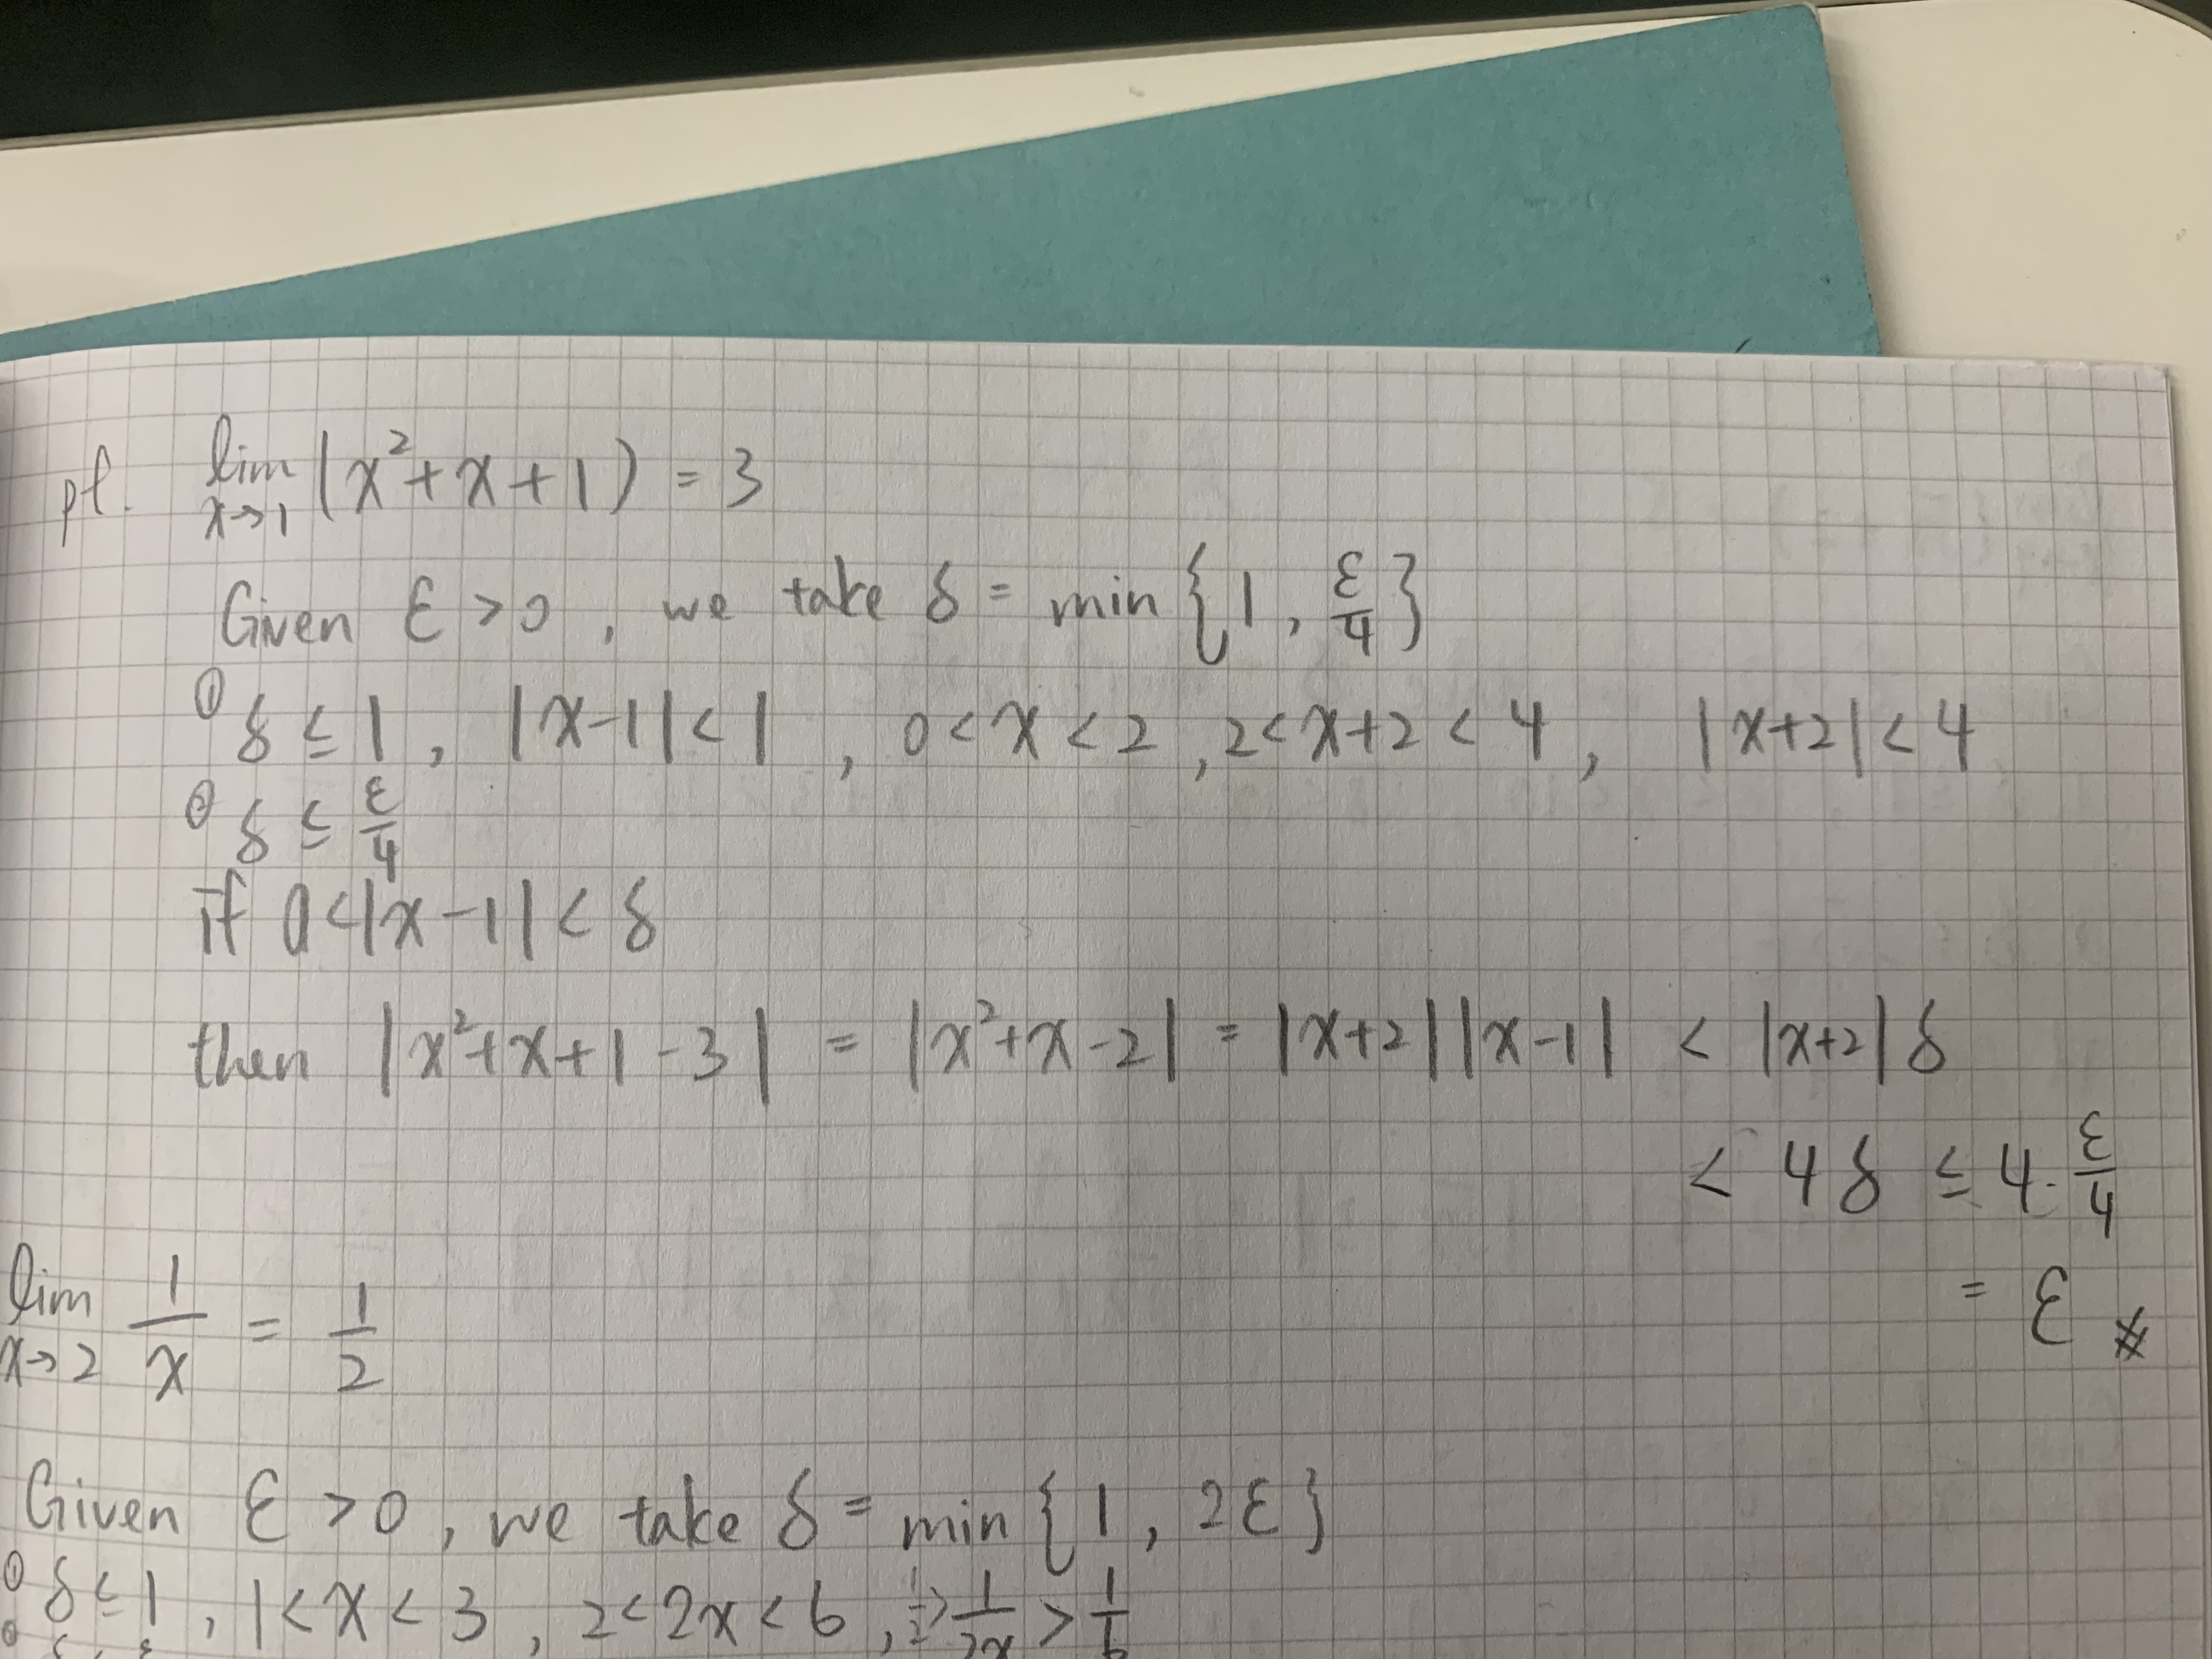 pf. lim x→1 (x²+x+1) = 3
Given ε>0, we take δ = min{1, ε/4}
① δ ≤ 1, |x-1|<1, 0<x<2, 2<x+2<4, |x+2|<4
② δ ≤ ε/4
if 0<|x-1|<δ
then |x²+x+1-3| = |x²+x-2| = |x+2||x-1| < |x+2|δ
< 4δ ≤ 4·ε/4
= ε #
lim x→2 1/x = 1/2
Given ε>0, we take δ = min{1, 2ε}
① δ ≤ 1, 1<x<3, 2<2x<6, 1/2 > 1/2x > 1/6